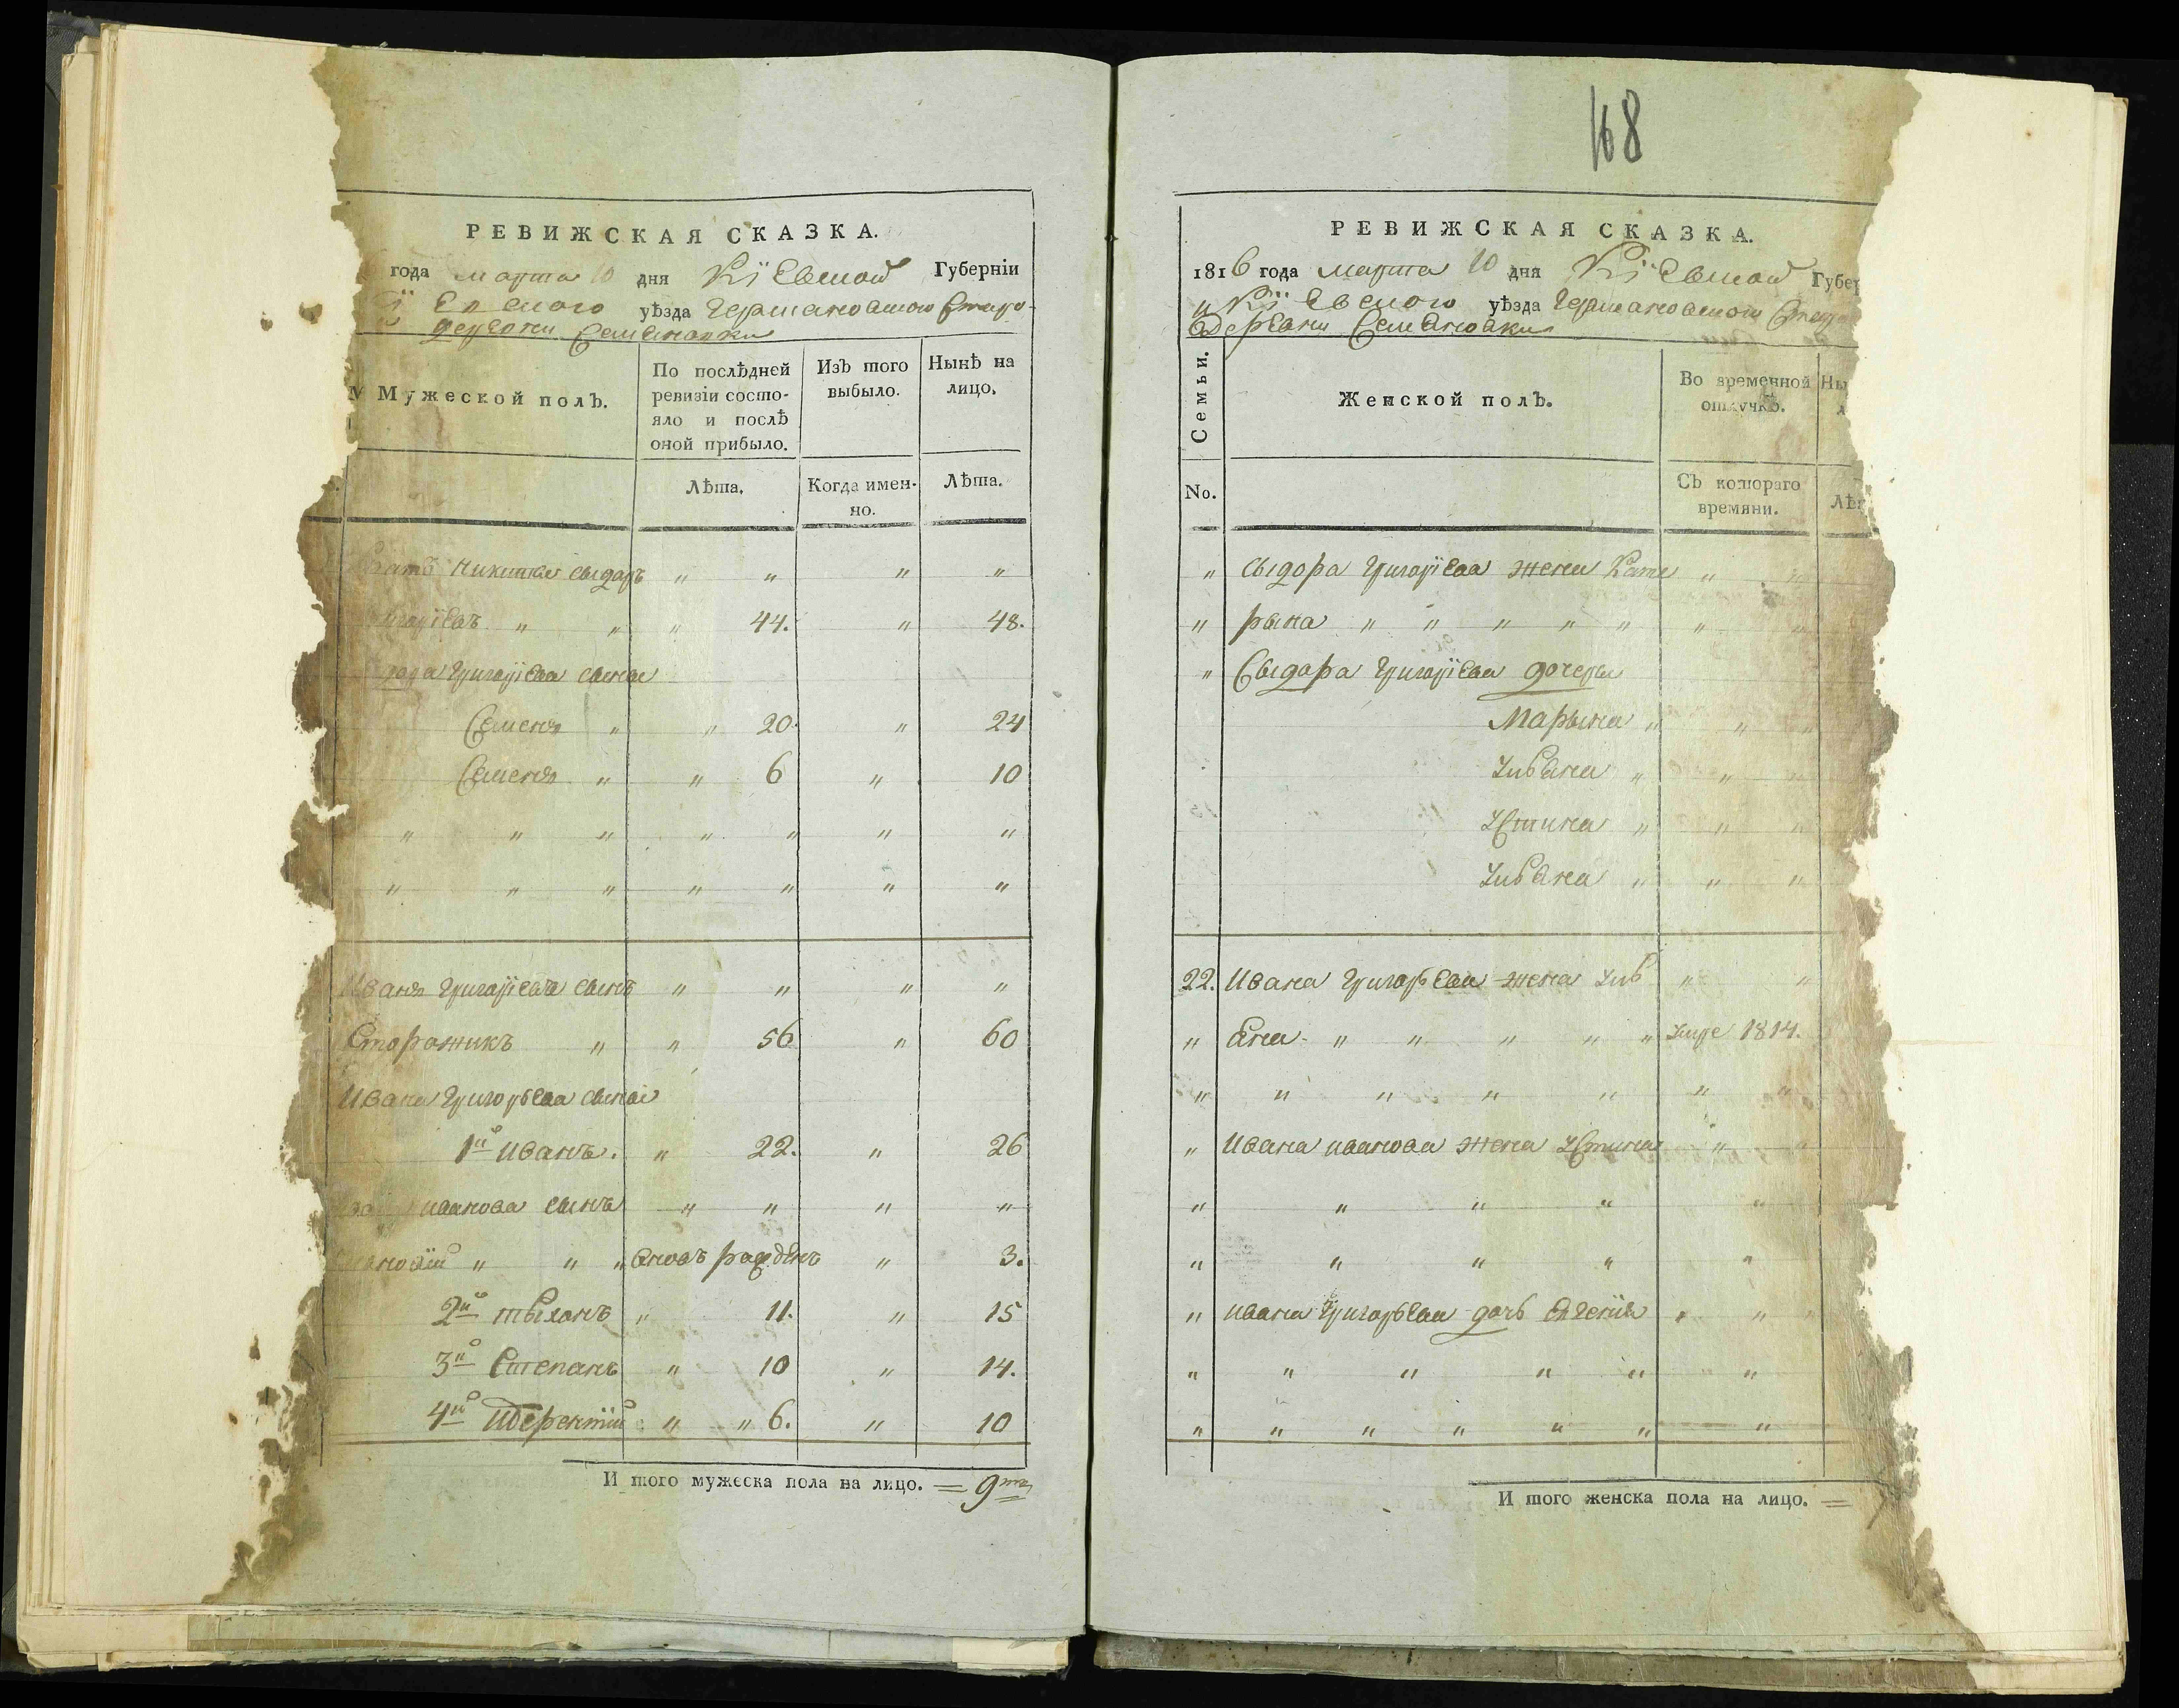 168
РЕВИЖСКАЯ СКАЗКА.
года марта 10 дня Кїевской Губернїи
уѣзда Германовского Старо-
деревни Семеновки
Мужеской полъ.
По послѣдней ревизїи состояло и послѣ оной прибыло.
Изъ того выбыло.
Нынѣ на лицо.
Лѣта.
Когда именно.
Лѣта.
Никитки сыдаръ " " " "
" " " 44. " 48.
Григорїева сыны
Семенъ " " 20. " 24
Семенъ " " 6 " 10
" " " " " " "
" " " " " " "
Иванъ Григорїевъ сынъ " " " "
Сторожикъ " " 56 " 60
Ивана Григорьева сыны
1й Иванъ. " 22. " 26
иванова сынъ " " " "
" " " вновь рожденъ " 3.
2й тыханъ " 11. " 15
3й Степанъ " 10 " 14.
4й " " 6. " 10
И того мужеска пола на лицо. = 9ть
РЕВИЖСКАЯ СКАЗКА.
1816 года марта 10 дня Кїевской Губер
Кїевского уѣзда Германовского
Деревни Семеновки
Семьи.
Женской полъ.
Во временной отлучкѣ.
No.
Съ котораго времяни.
" Сыдора Григорїева жена Кате " "
" рына " " " " " " "
" Сыдора Григорїева дочеры
Марына " " "
" " "
Устина " " "
" " "
22. Ивана Григорьева жена " "
" " " " " " 1814.
" " " " " " "
" Ивана иванова жена Устина " "
" " " " "
" " " " "
" ивана Григорьева дочь Евгенія " " "
" " " " " "
" " " " " " "
И того женска пола на лицо. =